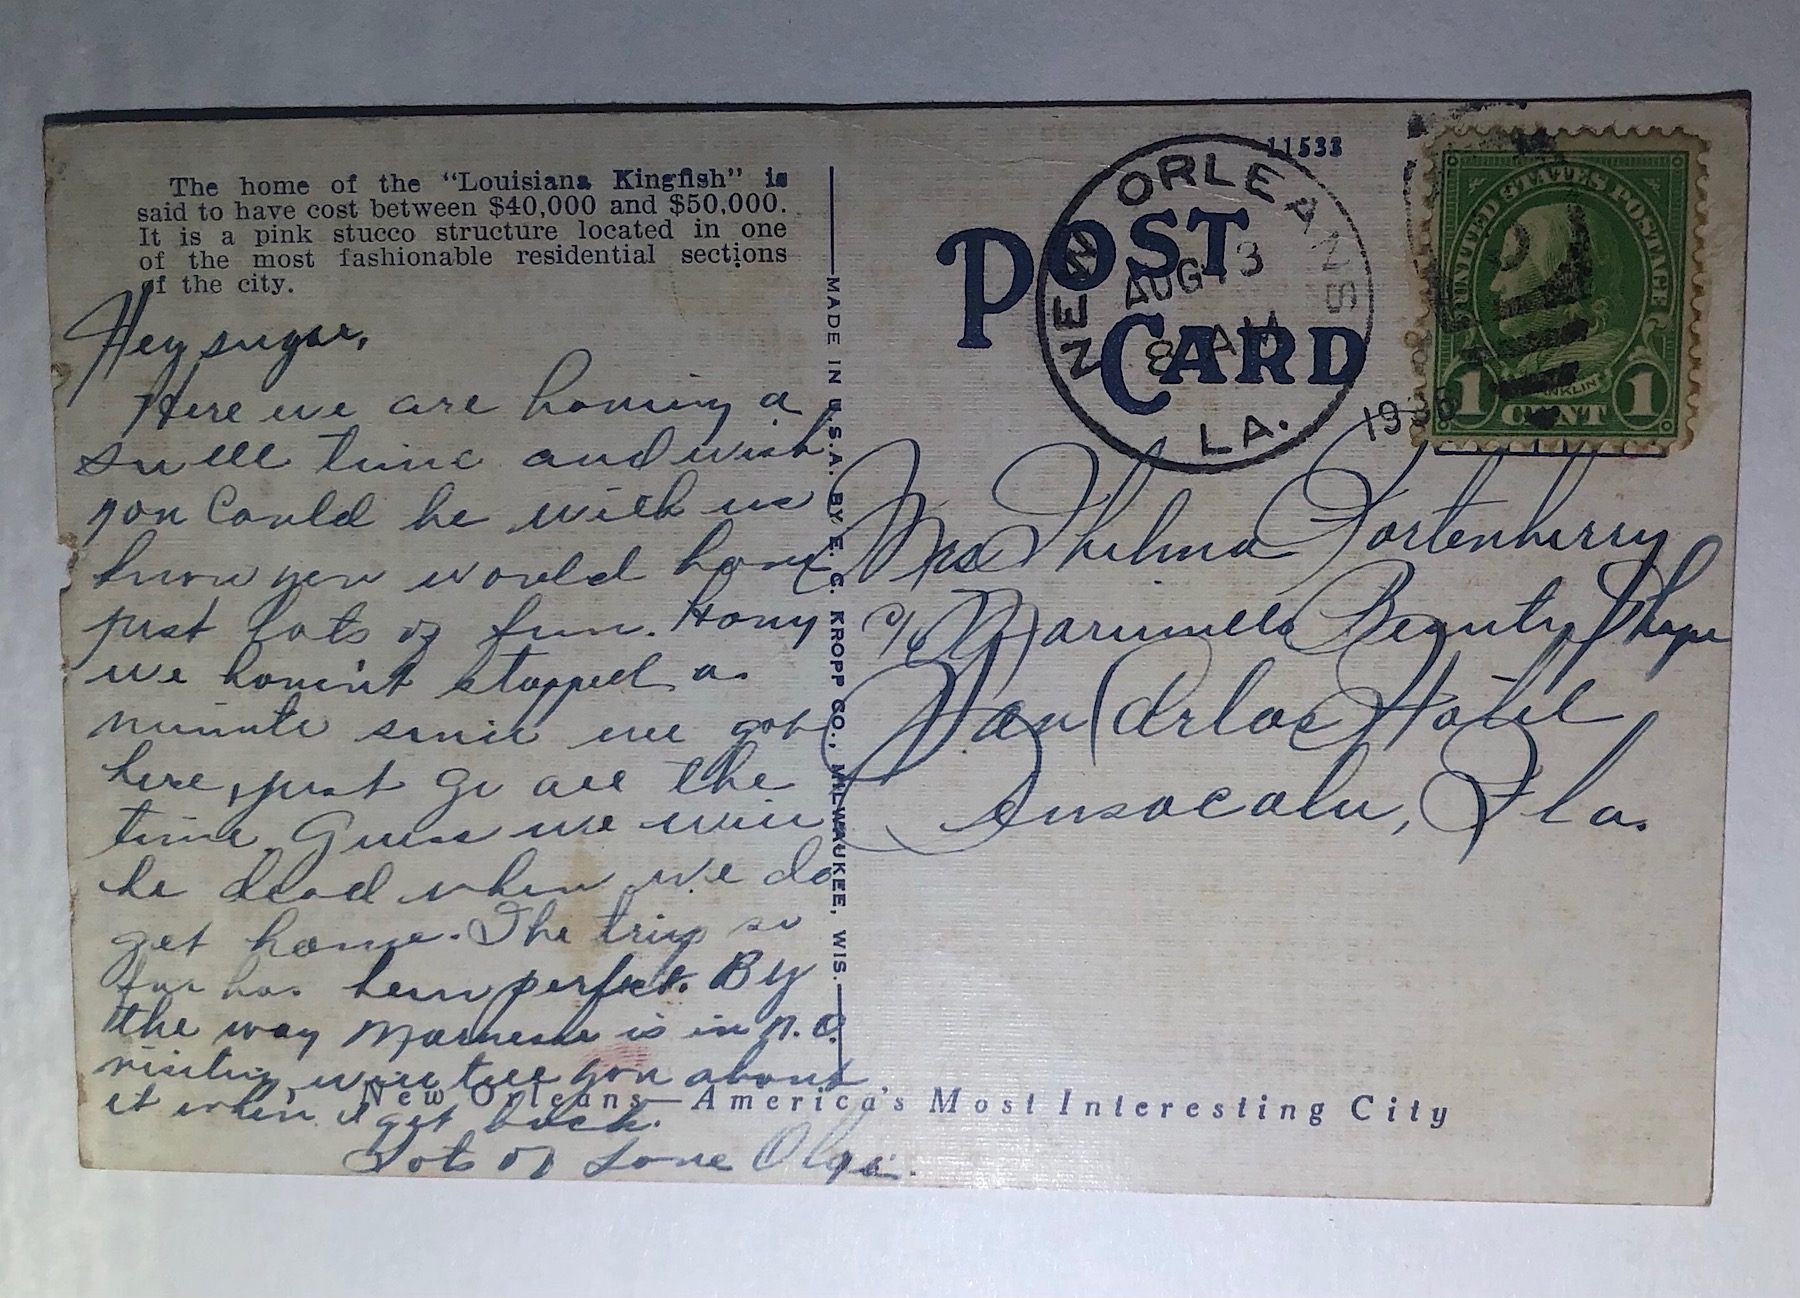 The home of the "Louisiana Kingfish" is
said to have cost between $40,000 and $50,000.
It is a pink stucco structure located in one
of the most fashionable residential sections
of the city.
Hey sugar,
Here we are having a
swell time and wish
you could be with us
know you would have
just lots of fun. Hony
we haven't stopped a
minute since we got
here, just go all the
time. Guess we will
be dead when we do
get home. The trip so
far has been perfect. By
the way is in N.O.
visiting, will tell you about
it when I get back.
Lots of Love Olga.
MADE IN U.S.A. BY E. C. KROPP CO., MILWAUKEE, WIS.
11533
POST
CARD
NEW ORLEANS
AUG 13
8 AM
LA.
UNITED STATES POSTAGE
FRANKLIN
1 CENT 1
Mrs Thelma Fortenberry
c/o Beauty Shope
San Carlos Hotel
Pensacola, Fla.
New Orleans—America's Most Interesting City